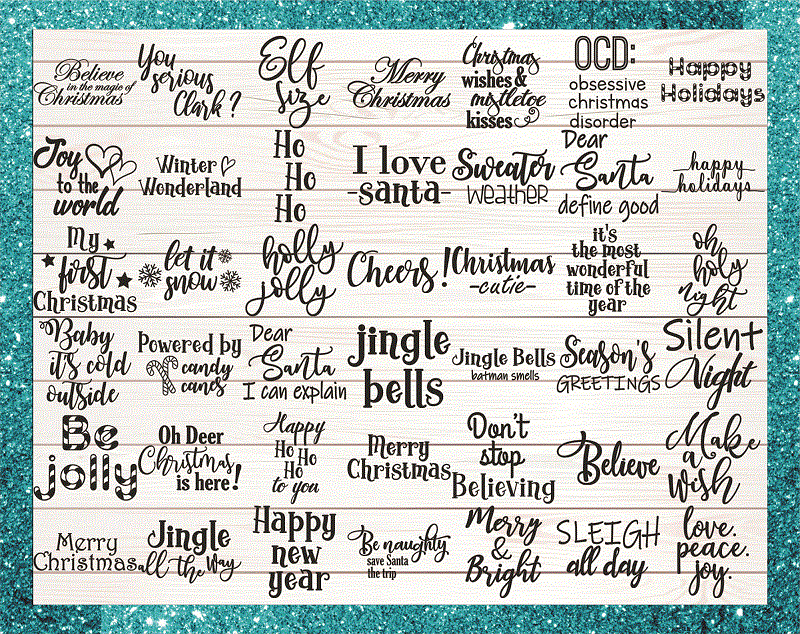 Believe
in the magic of
Christmas
You
serious
Clark?
Elf
size
Merry
Christmas
Christmas
wishes &
mistletoe
kisses
OCD:
obsessive
christmas
disorder
Happy
Holidays
Joy
to the
world
Winter
Wonderland
Ho
Ho
Ho
I love
-santa-
Sweater
weather
Dear
Santa
define good
happy
holidays
My
first
Christmas
let it
snow
holly
jolly
Cheers!
Christmas
-cutie-
it's
the most
wonderful
time of the
year
oh
holy
night
Baby
it's cold
outside
Powered by
candy
canes
Dear
Santa
I can explain
jingle
bells
Jingle Bells
batman smells
Season's
GREETINGS
Silent
Night
Be
jolly
Oh Deer
Christmas
is here!
Happy
Ho Ho
Ho
to you
Merry
Christmas
Don't
stop
Believing
Believe
Make
a
wish
Merry
Christmas
Jingle
all the way
Happy
new
year
Be naughty
save Santa
the trip
Merry
&
Bright
SLEIGH
all day
love.
peace.
joy.